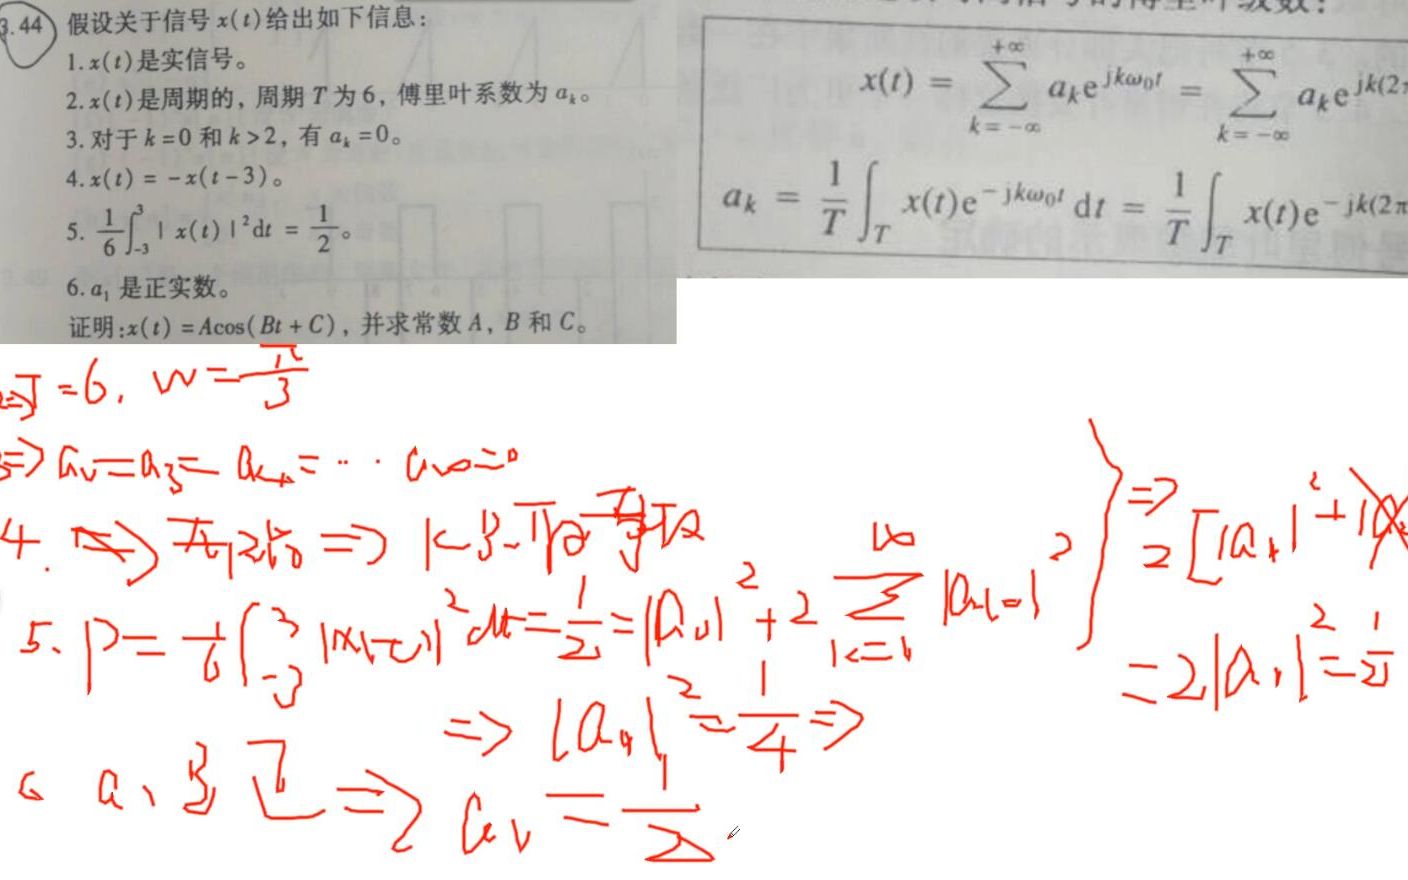 3.44 假设关于信号 x(t)给出如下信息:
1. x(t)是实信号。
2. x(t)是周期的, 周期 T 为 6, 傅里叶系数为 aₖ。
3. 对于 k=0 和 k>2, 有 aₖ=0。
4. x(t) = -x(t-3)。
5. 1/6 ∫₋₃³ | x(t) |² dt = 1/2。
6. a₁ 是正实数。
证明:x(t) = Acos(Bt + C), 并求常数 A, B 和 C。
x(t) = ∑_{k=-∞}^{+∞} aₖe^{jkω₀t} = ∑_{k=-∞}^{+∞} aₖe^{jk(2π
aₖ = 1/T ∫_T x(t)e^{-jkω₀t} dt = 1/T ∫_T x(t)e^{-jk(2π
=6, w = π/3
4.
5. P = 1/6 ∫₋₃³ |x(t)|² dt = 1/2 = |a₀|² + 2
=> 2[|a₁|² +
= 2|a₁|² = 1/2
=> |a₁|² = 1/4 =>
a₁ 是正 => a₁ = 1/2